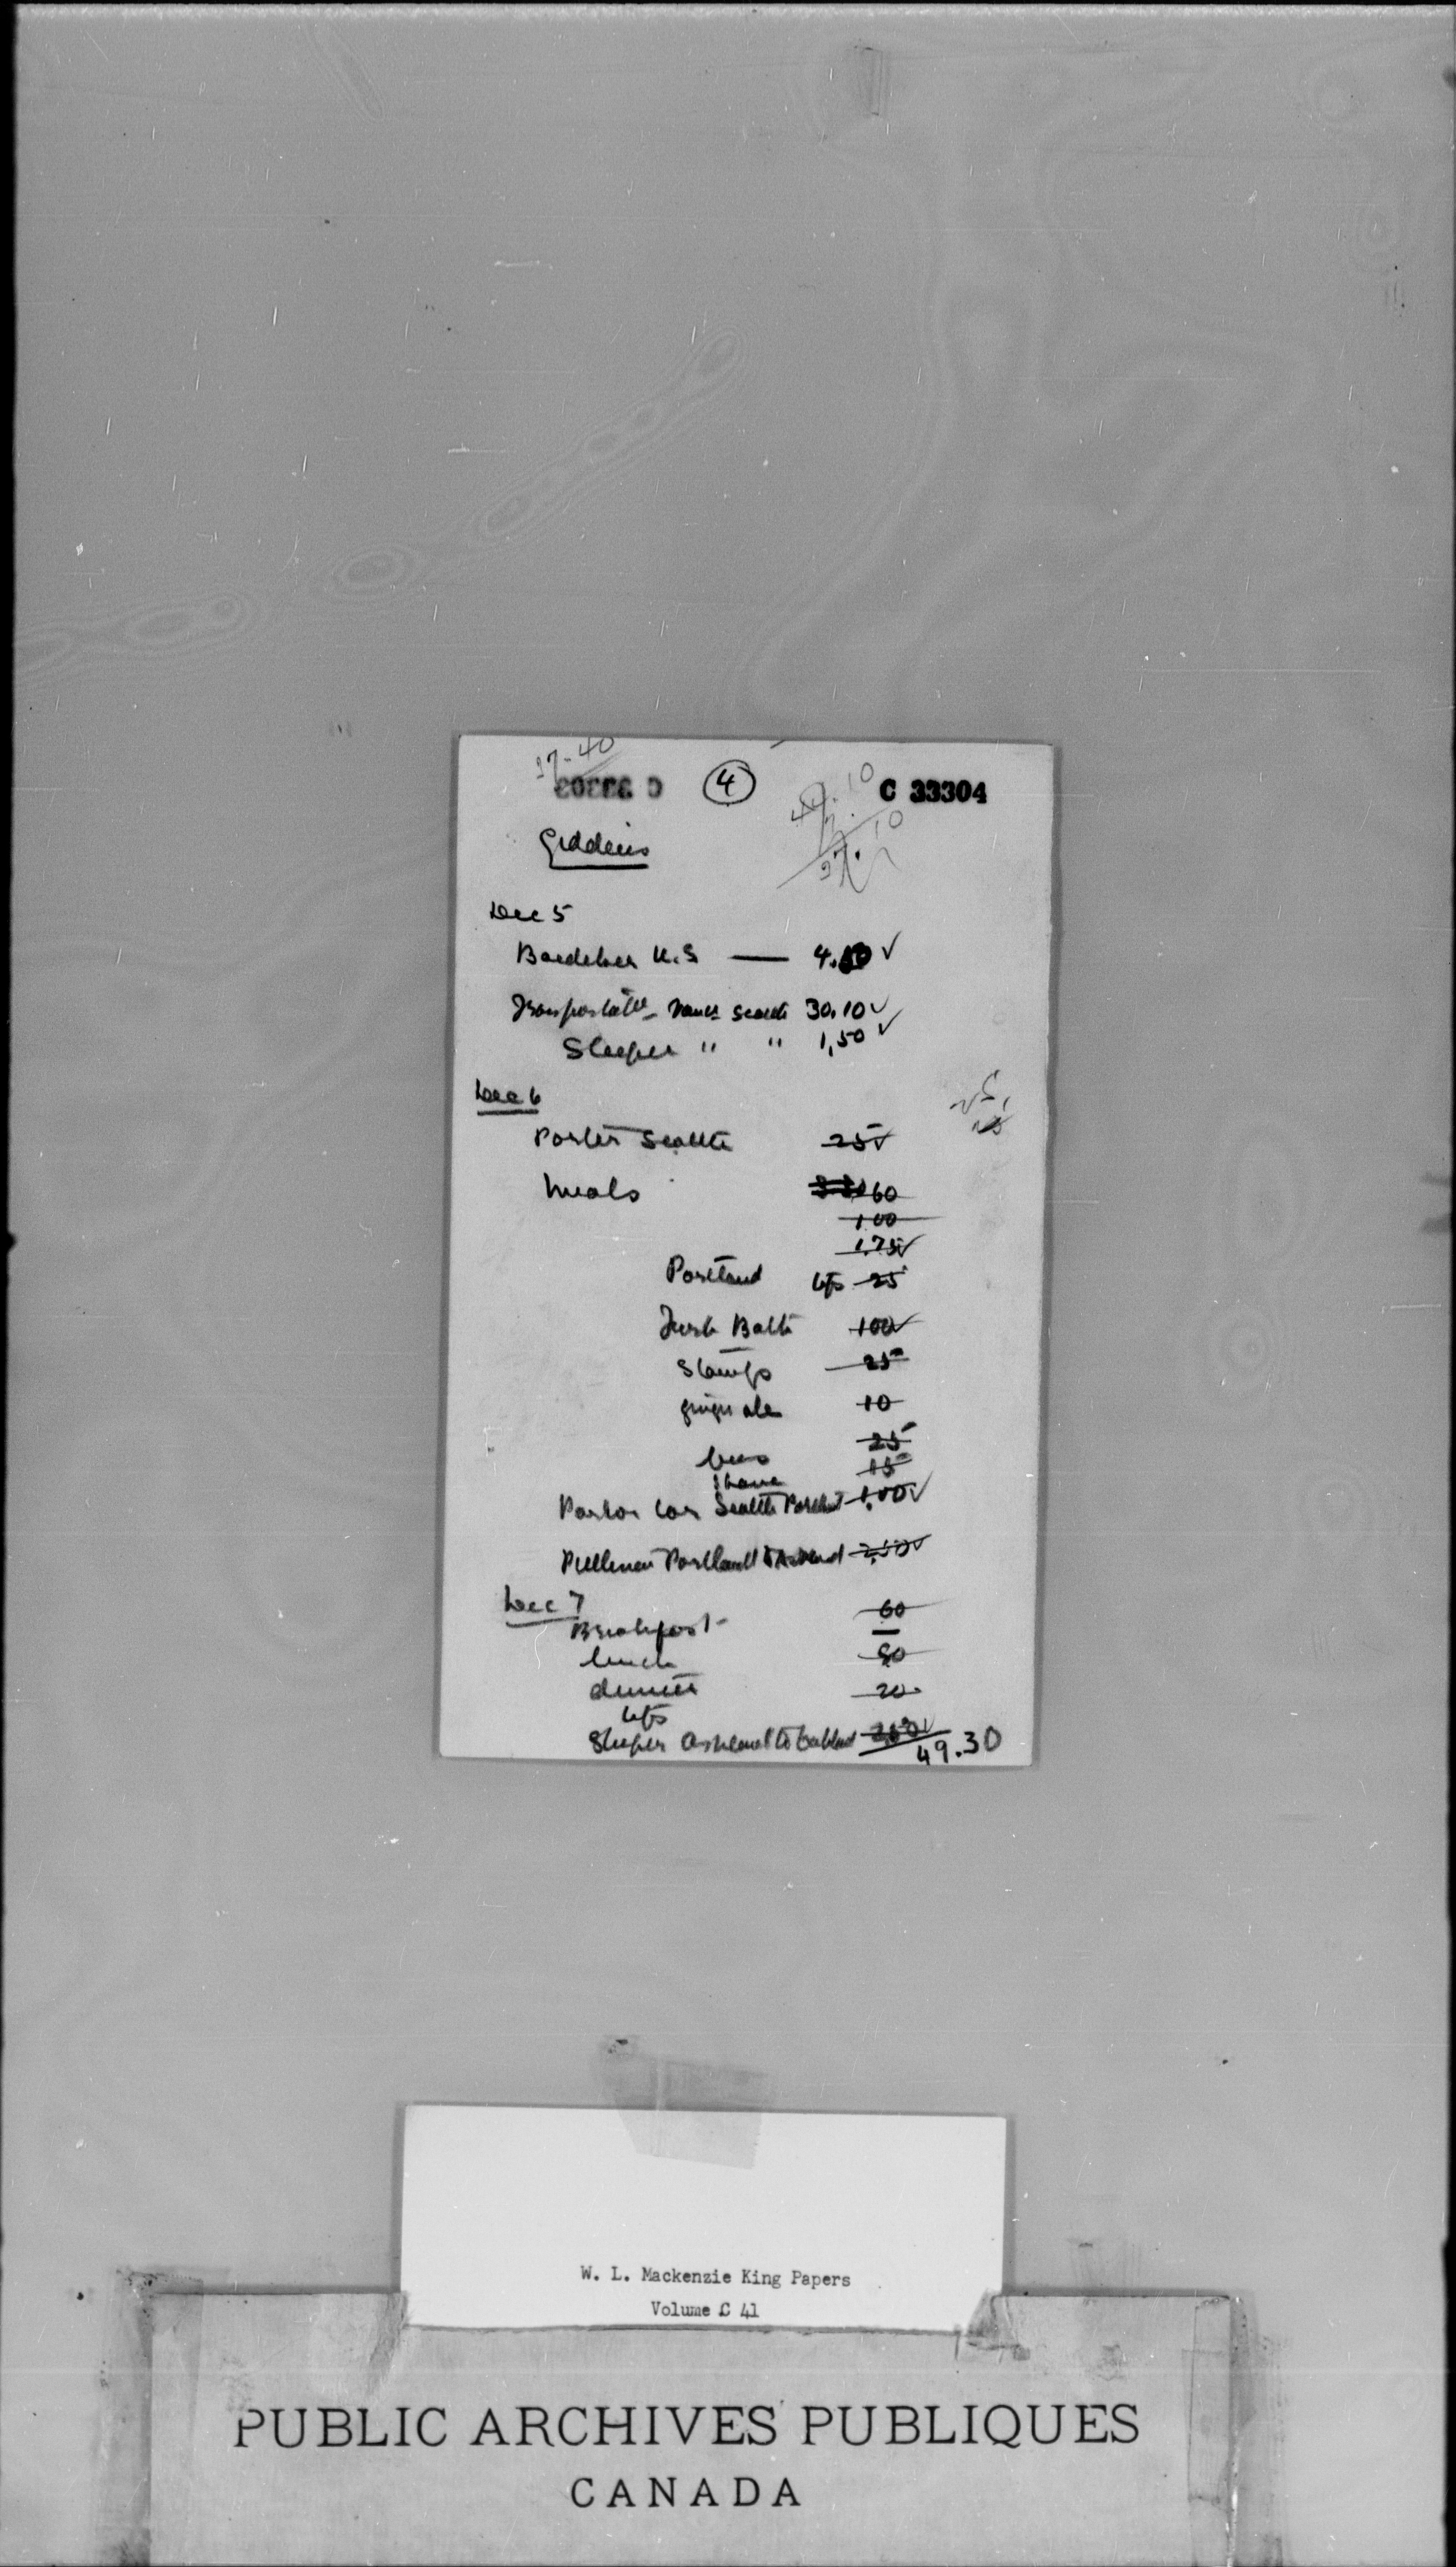 37.40
C 33303
4
C 33304
Giddens
Dec 5
Baedeker U.S — 4.50 ✓
Transportatn Vancr Seattle 30.10 ✓
Sleeper " " 1.50 ✓
Dec 6
Porter Seattle 25 ✓
Meals 60
1.00
1.75 ✓
Portland tips 25
Turk Bath 100 ✓
Stamps 25
ginger ale 10
25
15
Shave
Parlor Car Seattle Portland 1.00 ✓
Pullman Portland to Ashland 2.50 ✓
Dec 7
Breakfast 60
lunch
dinner 90
tips 20
Sleeper Ashland to Oakland 2.50 ✓
49.30
W. L. Mackenzie King Papers
Volume C 41
PUBLIC ARCHIVES PUBLIQUES
CANADA